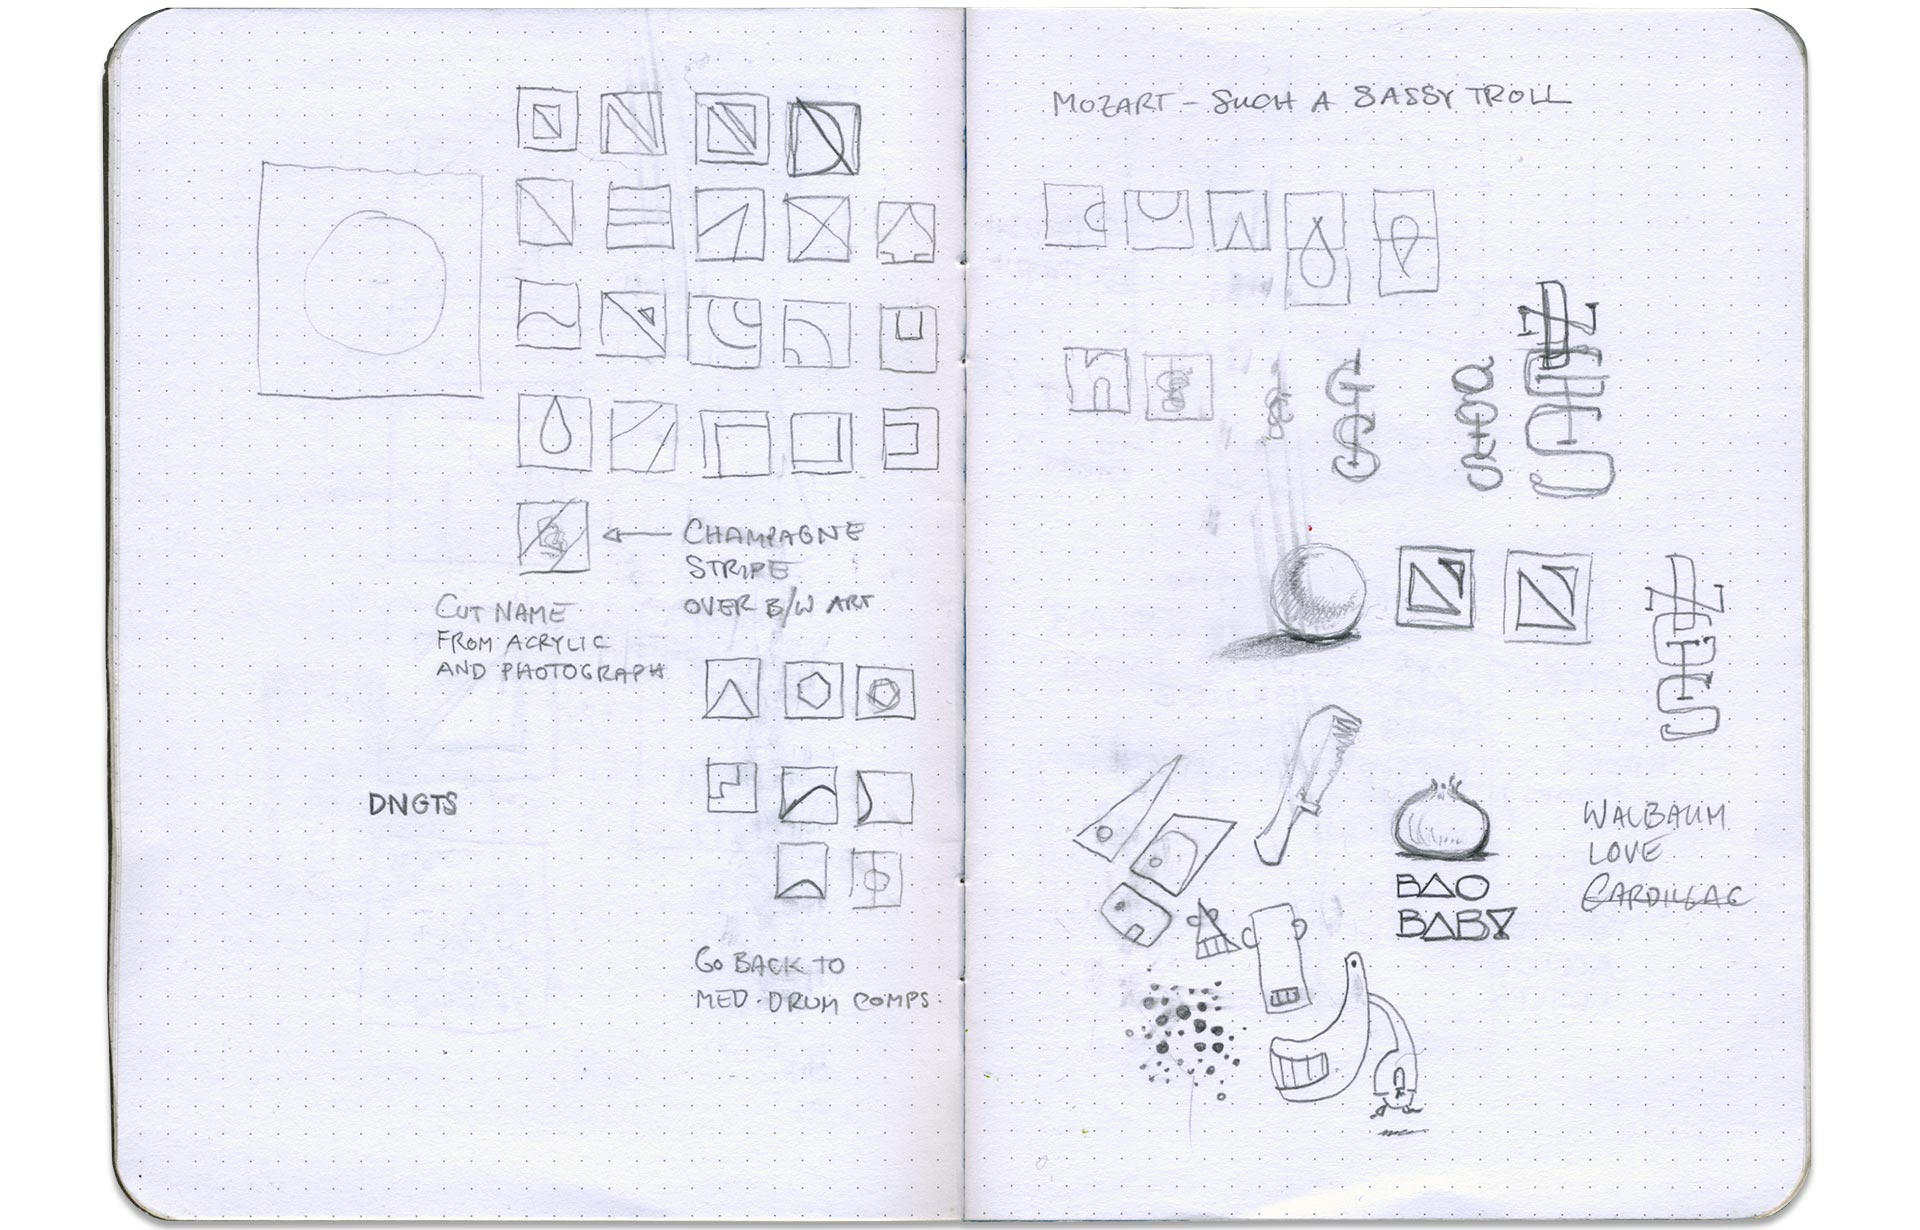 CHAMPAGNE
STRIPE
OVER B/W ART
CUT NAME
FROM ACRYLIC
AND PHOTOGRAPH
DNGTS
GO BACK TO
MED. DRUM COMPS:
MOZART – SUCH A SASSY TROLL
BAO
BABY
WALBAUM
LOVE
CARDILLAC